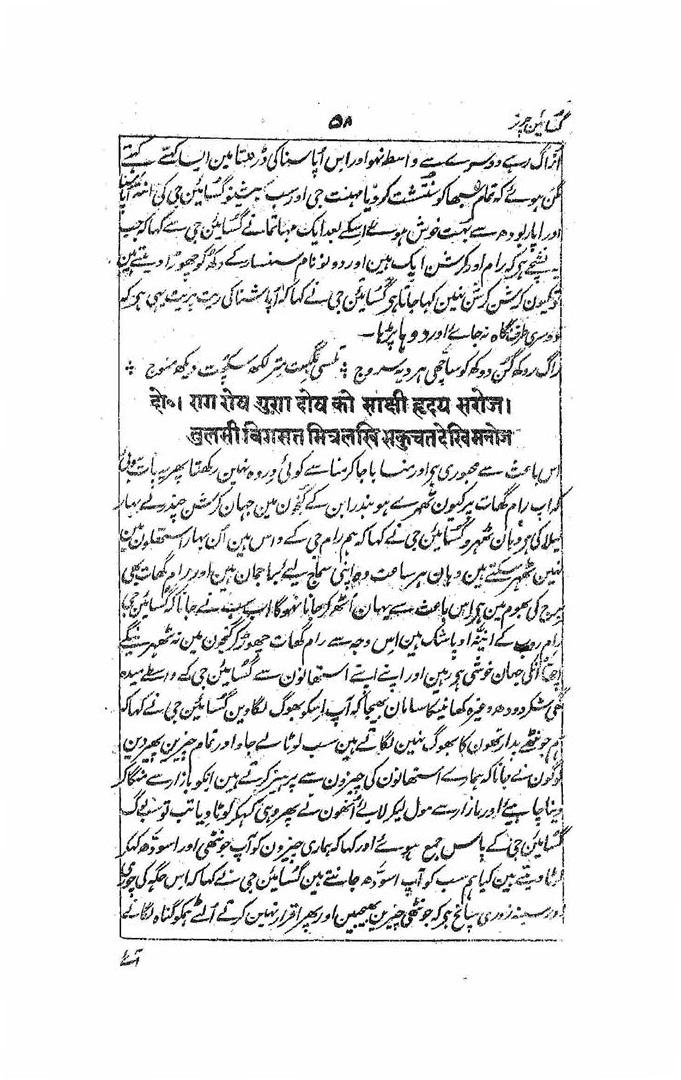 گسائین چرتر ۵۸
از اگ رہے دوسرے سے واسطہ نہو اور اس اُپاسنا کی درڑھتا مین ایسا کہتے کہتے
مگن ہوئے کہ تمام سبھا کو سنتشٹ کردیا مہنت جی اور سب بیشنو گسائین جی کی
اور اپار بودھ سے بہت خوش ہوئے اسکے بعد ایک مہاتما نے گسائین جی سے کہا کہ جب
یہ نشچے ہے کہ رام اور کرشن ایک ہین اور دونو نام سنسار کے دکھ کو چھوڑا دیتے ہین
تو کیون کرشن کرشن نہین کہا جاتا ہے گسائین جی نے کہا کہ اُپاسنا کی ریت پریت یہی ہے کہ
دوسری طرف نگاہ نہ جائے اور دوہا پڑہا ۔
راگ روکھ گن دوکھ کو ساچھی ہردیہ سروج ؛ تلسی بگست متر لکھ سکچت دیکھ منوج ؛
दो०। राग रोष गुण दोष को साक्षी हृदय सरोज।
तुलसी बिगसत मित्र लखि सकुचत देखि मनोज
اس باعث سے مجبوری ہے اور منسا باچا کرمنا سے کوئی دروہ نہین رکھتا پھر یہ بات ہوئی
کہ اب رام گھات پر کیون ٹھہرے ہو بندرابن کے کنجون مین جہان کرشن چندر نے بہار
لیلا کی ہے وہان ٹھہرو گسائین جی نے کہا کہ ہم رام جی کے داس ہین اُن بہار استھلون مین
نہین ٹھہر سکتے ہین وہان ہر ساعت وہ اپنی سماج لیے براجمان ہین اور رام گھات بھی
برج کی بھوم مین ہے اس باعث سے یہان اُٹھکر جانا نہوگا اب سب نے جانا کہ گسائین جی
رام روپ کے انیتہ اوپاشک ہین اس وجہ سے رام گھات چھوڑ کر کنجون مین نہ ٹھہرینگے
اچھا انکی جہان خوشی ہے رہین اور اپنے اپنے استھانون سے گسائین جی کے واسطے میدہ
گھی شکر دودھ وغیرہ کھانیکا سامان بھیجا کہ آپ اسکو بھوگ لگاوین گسائین جی نے کہا کہ
ہم جونٹھے پدارتھون کا بھوگ نہین لگاتے ہین سب لوٹا لے جاو اور تمام چیزین پھیر دین
لوگون نے جانا کہ ہمارے استھانون کی چیزون سے پرہیز کرتے ہین انکو بازار سے منگا کر
دینا چاہیئے اور بازار سے مول لیکر لائے اُنھون نے پھر وہی کہکر لوٹا دیا تب تو سب لوگ
گسائین جی کے پاس جمع ہوئے اور کہا کہ ہماری چیزون کو آپ جونٹھی اور اسودھ کہکر
لوٹا دیتے ہین کیا ہم سب کو آپ اسودھ جانتے ہین گسائین جی نے کہا کہ اس جگہ کی چوری
اور سینہ زوری سانچ ہے کہ جونٹھی چیزین بھیجین اور پھر اقرار نہین کرتے اُلٹے ہمکو گناہ لگانے
آئے